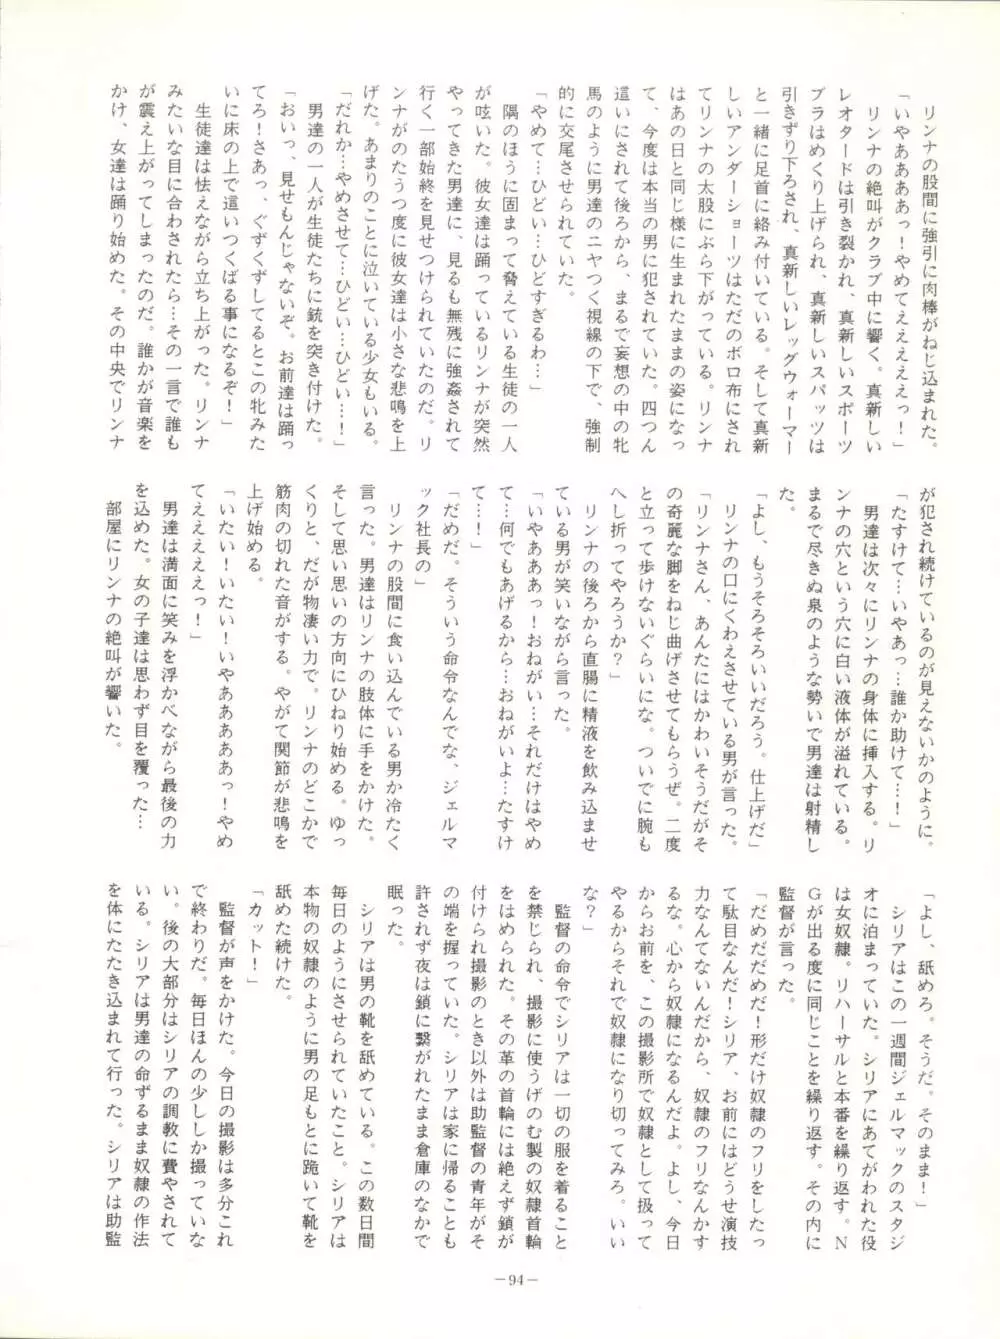 リンナの股間に強引に肉棒がねじ込まれた。
「いやああああっ！やめてえええええっ！」
リンナの絶叫がクラブ中に響く。真新しい
レオタードは引き裂かれ、真新しいスポーツ
ブラはめくり上げられ、真新しいスパッツは
引きずり下ろされ、真新しいレッグウォーマー
と一緒に足首に絡み付いている。そして真新
しいアンダーショーツはただのボロ布にされ
てリンナの太股にぶら下がっている。リンナ
はあの日と同じ様に生まれたままの姿になっ
て、今度は本当の男に犯されていた。四つん
這いにされて後ろから、まるで妄想の中の牝
馬のように男達のニヤつく視線の下で、強制
的に交尾させられていた。
「やめて…ひどい…ひどすぎるわ…」
隅のほうに固まって脅えている生徒の一人
が呟いた。彼女達は踊っているリンナが突然
やってきた男達に、見るも無残に強姦されて
行く一部始終を見せつけられていたのだ。リ
ンナがのたうつ度に彼女達は小さな悲鳴を上
げた。あまりのことに泣いている少女もいる。
「だれか…やめさせて…ひどい…ひどい…！」
男達の一人が生徒たちに銃を突き付けた。
「おいっ、見せもんじゃないぞ。お前達は踊っ
てろ！さあっ、ぐずぐずしてるとこの牝みた
いに床の上で這いつくばる事になるぞ！」
生徒達は怯えながら立ち上がった。リンナ
みたいな目に合わされたら…その一言で誰も
が震え上がってしまったのだ。誰かが音楽を
かけ、女達は踊り始めた。その中央でリンナ
が犯され続けているのが見えないかのように。
「たすけて…いやあっ…誰か助けて…！」
男達は次々にリンナの身体に挿入する。リ
ンナの穴という穴に白い液体が溢れている。
まるで尽きぬ泉のような勢いで男達は射精し
た。
「よし、もうそろそろいいだろう。仕上げだ」
リンナの口にくわえさせている男が言った。
「リンナさん、あんたにはかわいそうだがそ
の奇麗な脚をねじ曲げさせてもらうぜ。二度
と立って歩けないぐらいにな。ついでに腕も
へし折ってやろうか？」
リンナの後ろから直腸に精液を飲み込ませ
ている男が笑いながら言った。
「いやあああっ！おねがい…それだけはやめ
て…何でもあげるから…おねがいよ…たすけ
て…！」
「だめだ。そういう命令なんでな、ジェルマ
ック社長の」
リンナの股間に食い込んでいる男か冷たく
言った。男達はリンナの肢体に手をかけた。
そして思い思いの方向にひねり始める。ゆっ
くりと、だが物凄い力で。リンナのどこかで
筋肉の切れた音がする。やがて関節が悲鳴を
上げ始める。
「いたい！いたい！いやああああっ！やめ
てえええええっ！」
男達は満面に笑みを浮かべながら最後の力
を込めた。女の子達は思わず目を覆った…
部屋にリンナの絶叫が響いた。
「よし、舐めろ。そうだ。そのまま！」
シリアはこの一週間ジェルマックのスタジ
オに泊まっていた。シリアにあてがわれた役
は女奴隷。リハーサルと本番を繰り返す。N
Gが出る度に同じことを繰り返す。その内に
監督が言った。
「だめだだめだ！形だけ奴隷のフリをしたっ
て駄目なんだ！シリア、お前にはどうせ演技
力なんてないんだから、奴隷のフリなんかす
るな。心から奴隷になるんだよ。よし、今日
からお前を、この撮影所で奴隷として扱って
やるからそれで奴隷になり切ってみろ。いい
な？」
監督の命令でシリアは一切の服を着ること
を禁じられ、撮影に使うげのむ製の奴隷首輪
をはめられた。その革の首輪には絶えず鎖が
付けられ撮影のとき以外は助監督の青年がそ
の端を握っていた。シリアは家に帰ることも
許されず夜は鎖に繋がれたまま倉庫のなかで
眠った。
シリアは男の靴を舐めている。この数日間
毎日のようにさせられていたこと。シリアは
本物の奴隷のように男の足もとに跪いて靴を
舐めた続けた。
「カット！」
監督が声をかけた。今日の撮影は多分これ
で終わりだ。毎日ほんの少ししか撮っていな
い。後の大部分はシリアの調教に費やされて
いる。シリアは男達の命ずるまま奴隷の作法
を体にたたき込まれて行った。シリアは助監
－94－